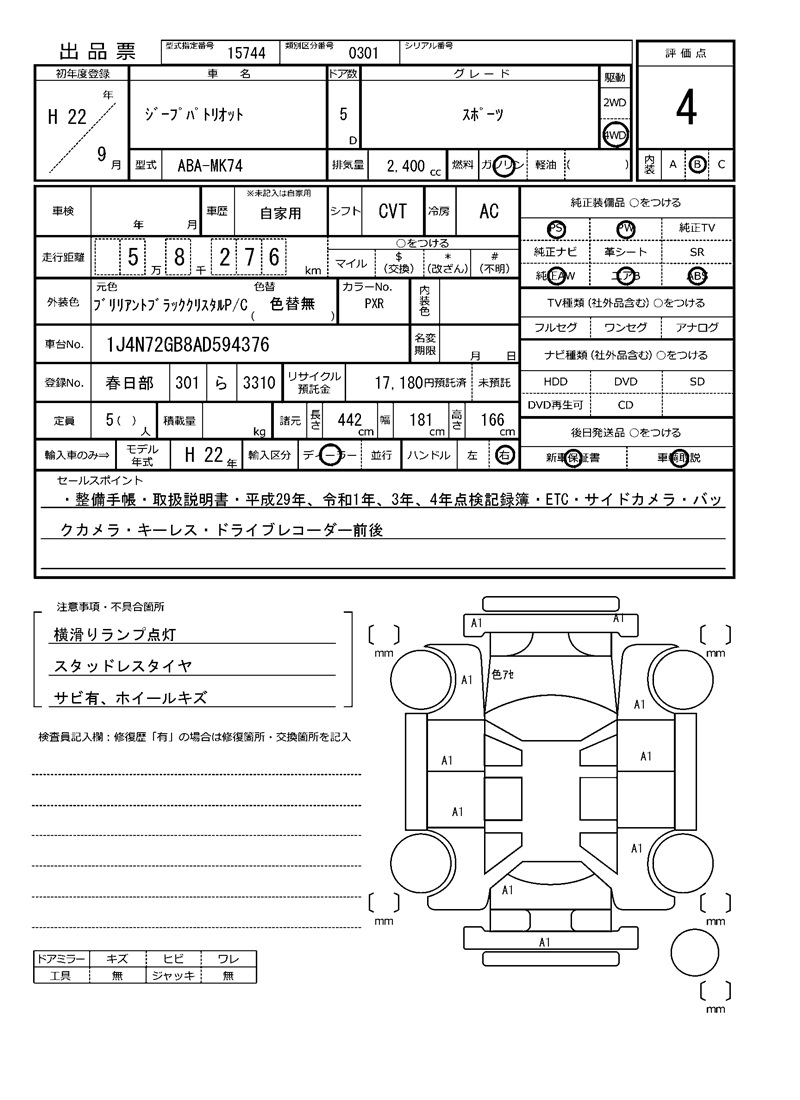 出品票 型式指定番号 15744 類別区分番号 0301 シリアル番号
評価点
初年度登録 車名 ドア数 グレード 駆動
H 22 年 / 9 月 ジープパトリオット 5 D スポーツ 2WD 4WD
4
型式 ABA-MK74 排気量 2,400 cc 燃料 ガソリン 軽油 ( )
内装 A B C
車検 年 月 車歴 ※未記入は自家用 自家用 シフト CVT 冷房 AC
走行距離 5 万 8 千 2 7 6 km
○をつける
マイル $(交換) *(改ざん) #(不明)
外装色 元色 ブリリアントブラッククリスタルP/C 色替 ( 色替無 ) カラーNo. PXR 内装色
車台No. 1J4N72GB8AD594376 名変期限 月 日
登録No. 春日部 301 ら 3310 リサイクル預託金 17,180円預託済 未預託
定員 5( ) 人 積載量 kg 諸元 長さ 442 cm 幅 181 cm 高さ 166 cm
輸入車のみ⇒ モデル年式 H 22 年 輸入区分 ディーラー 並行 ハンドル 左 右
純正装備品 ○をつける
PS PW 純正TV
純正ナビ 革シート SR
純正AW エアB ABS
TV種類 (社外品含む) ○をつける
フルセグ ワンセグ アナログ
ナビ種類 (社外品含む) ○をつける
HDD DVD SD
DVD再生可 CD
後日発送品 ○をつける
新車保証書 車輌取説
セールスポイント
・整備手帳・取扱説明書・平成29年、令和1年、3年、4年点検記録簿・ETC・サイドカメラ・バッ
クカメラ・キーレス・ドライブレコーダー前後
注意事項・不具合箇所
横滑りランプ点灯
スタッドレスタイヤ
サビ有、ホイールキズ
検査員記入欄:修復歴「有」の場合は修復箇所・交換箇所を記入
ドアミラー キズ ヒビ ワレ
工具 無 ジャッキ 無
A1 A1
mm mm
A1 色アセ
A1
A1 A1
A1
A1
A1
mm mm
A1
mm